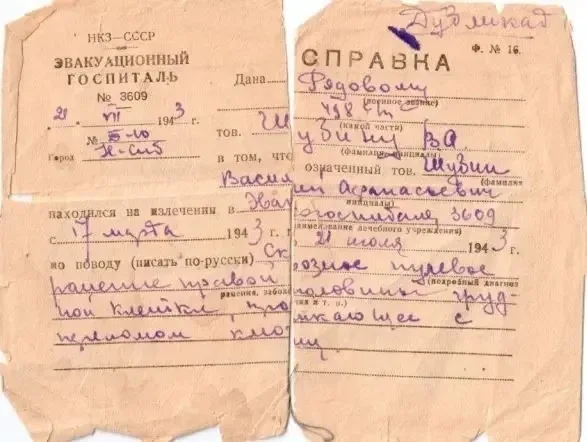 Дубликат
НКЗ—СССР
ЭВАКУАЦИОННЫЙ
ГОСПИТАЛЬ
№ 3609
21 VII 1943 г.
№ Б-10
Город Н-Сиб
Ф. № 16.
СПРАВКА
Дана Рядовому
(воинское звание)
498
(какой части)
тов. Шузину ВА
(фамилия, инициалы)
в том, что означенный тов. Шузин
(фамилия
Василий Афанасьевич
инициалы)
находился на излечении в Эвакогоспитале 3609
(наименование лечебного учреждения)
с 17 марта 1943 г. 21 июля 1943 г.
по поводу (писать по-русски) Сквозное пулевое
(подробный диагноз
ранение правой половины груд-
ранения, заболевания и т. п.)
ной клетки, проникающее с
переломом ключицы